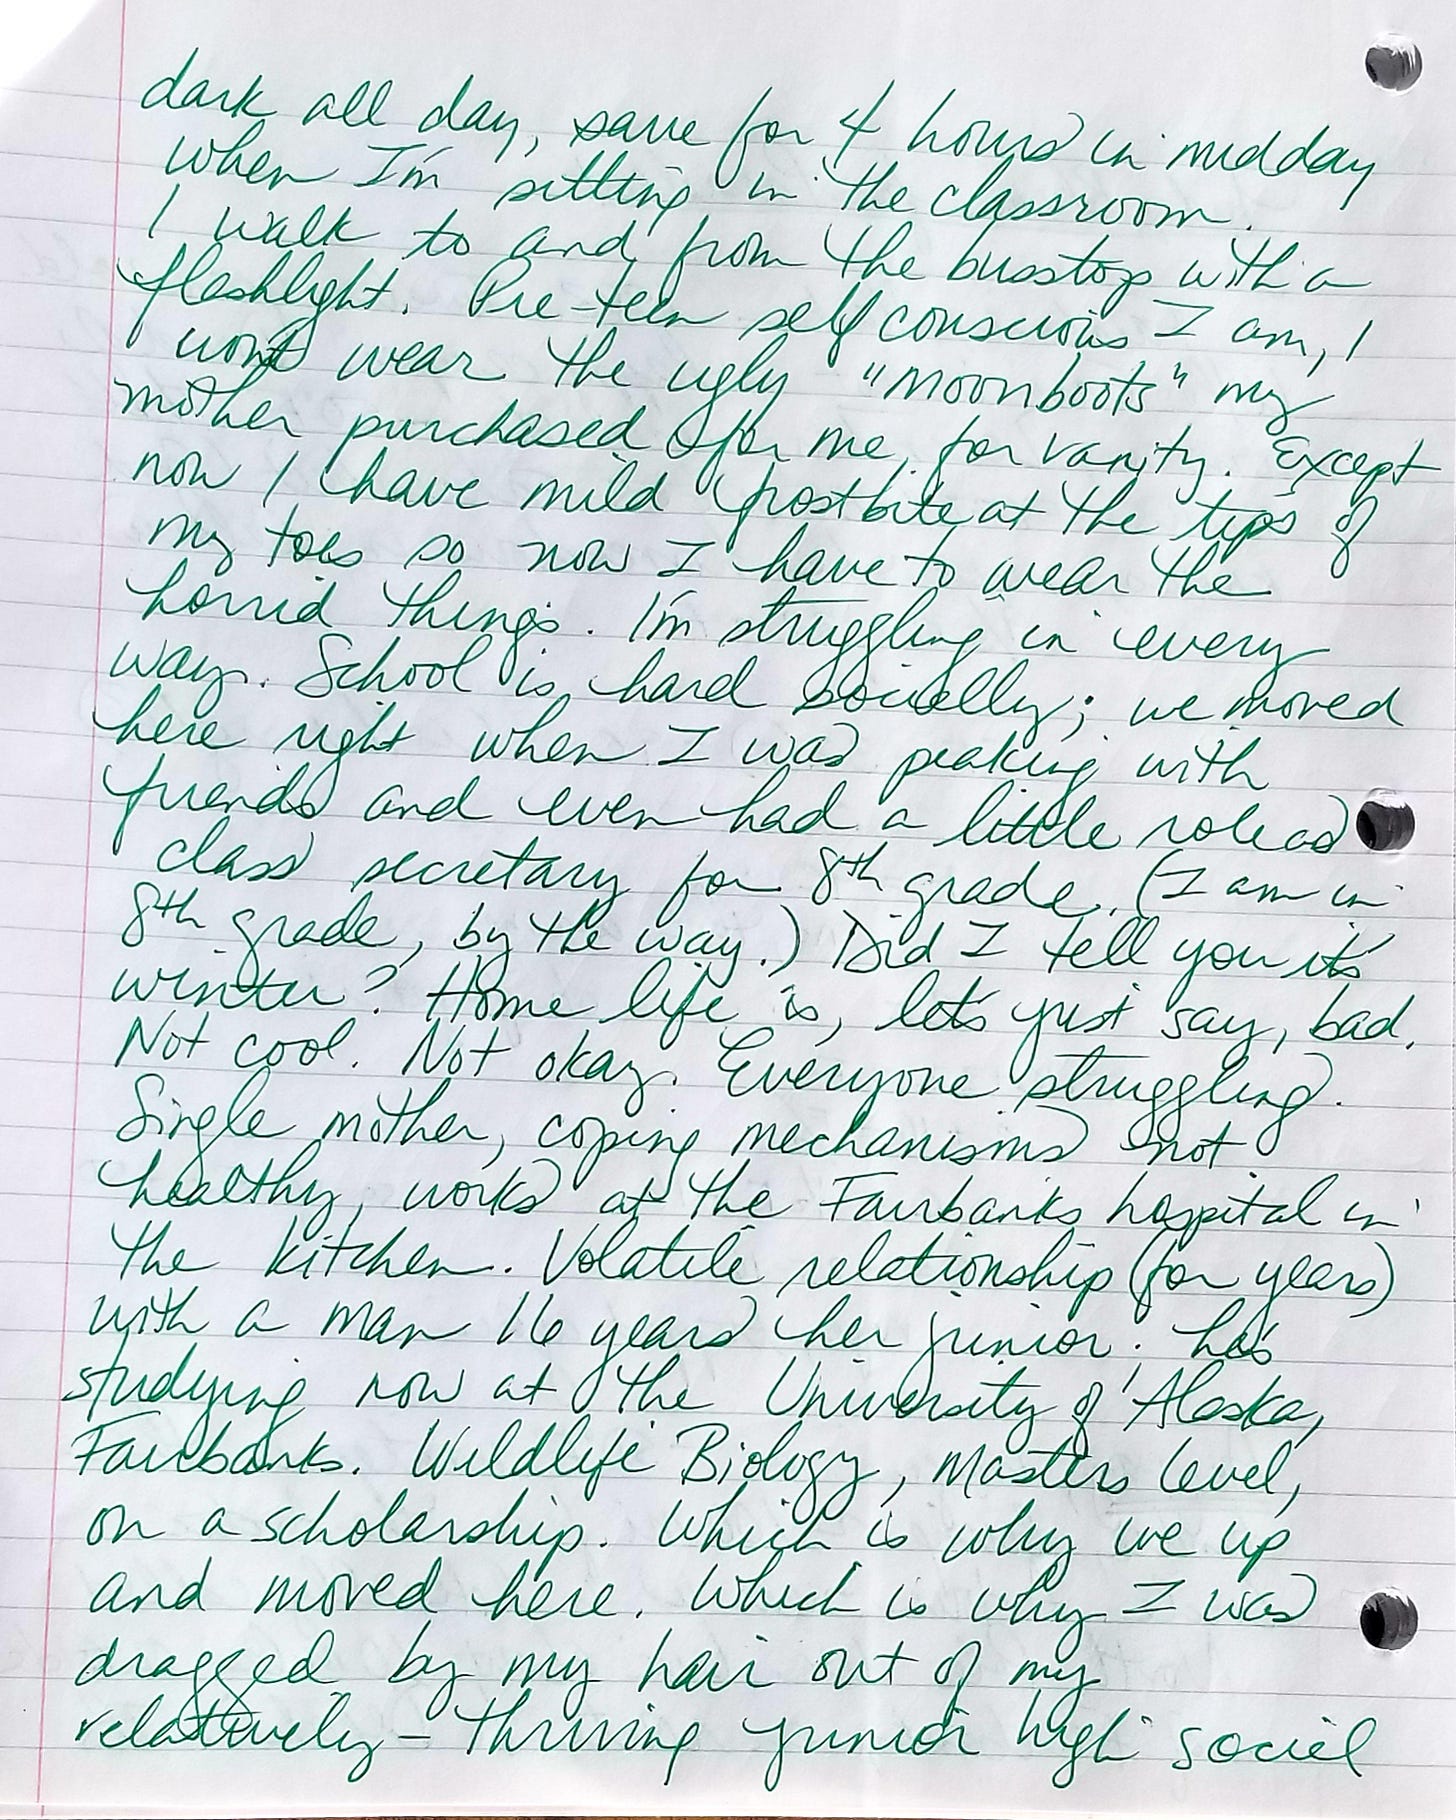 dark all day, save for 4 hours in midday
when I'm sitting in the classroom.
I walk to and from the busstop with a
flashlight. Pre-teen self conscious I am, I
won't wear the ugly "moonboots" my
mother purchased for me, for vanity. Except
now I have mild frostbite at the tips of
my toes so now I have to wear the
horrid things. I'm struggling in every
way. School is hard socially; we moved
here right when I was peaking with
friends and even had a little role as
class secretary for 8th grade. (I am in
8th grade, by the way.) Did I tell you it's
winter? Home life is, let's just say, bad.
Not cool. Not okay. Everyone struggling.
Single mother, coping mechanisms not
healthy, works at the Fairbanks hospital in
the kitchen. Volatile relationship (for years)
with a man 16 years her junior. he's
studying now at the University of Alaska,
Fairbanks. Wildlife Biology, Masters level,
on a scholarship. Which is why we up
and moved here. Which is why I was
dragged by my hair out of my
relatively-thriving junior high social